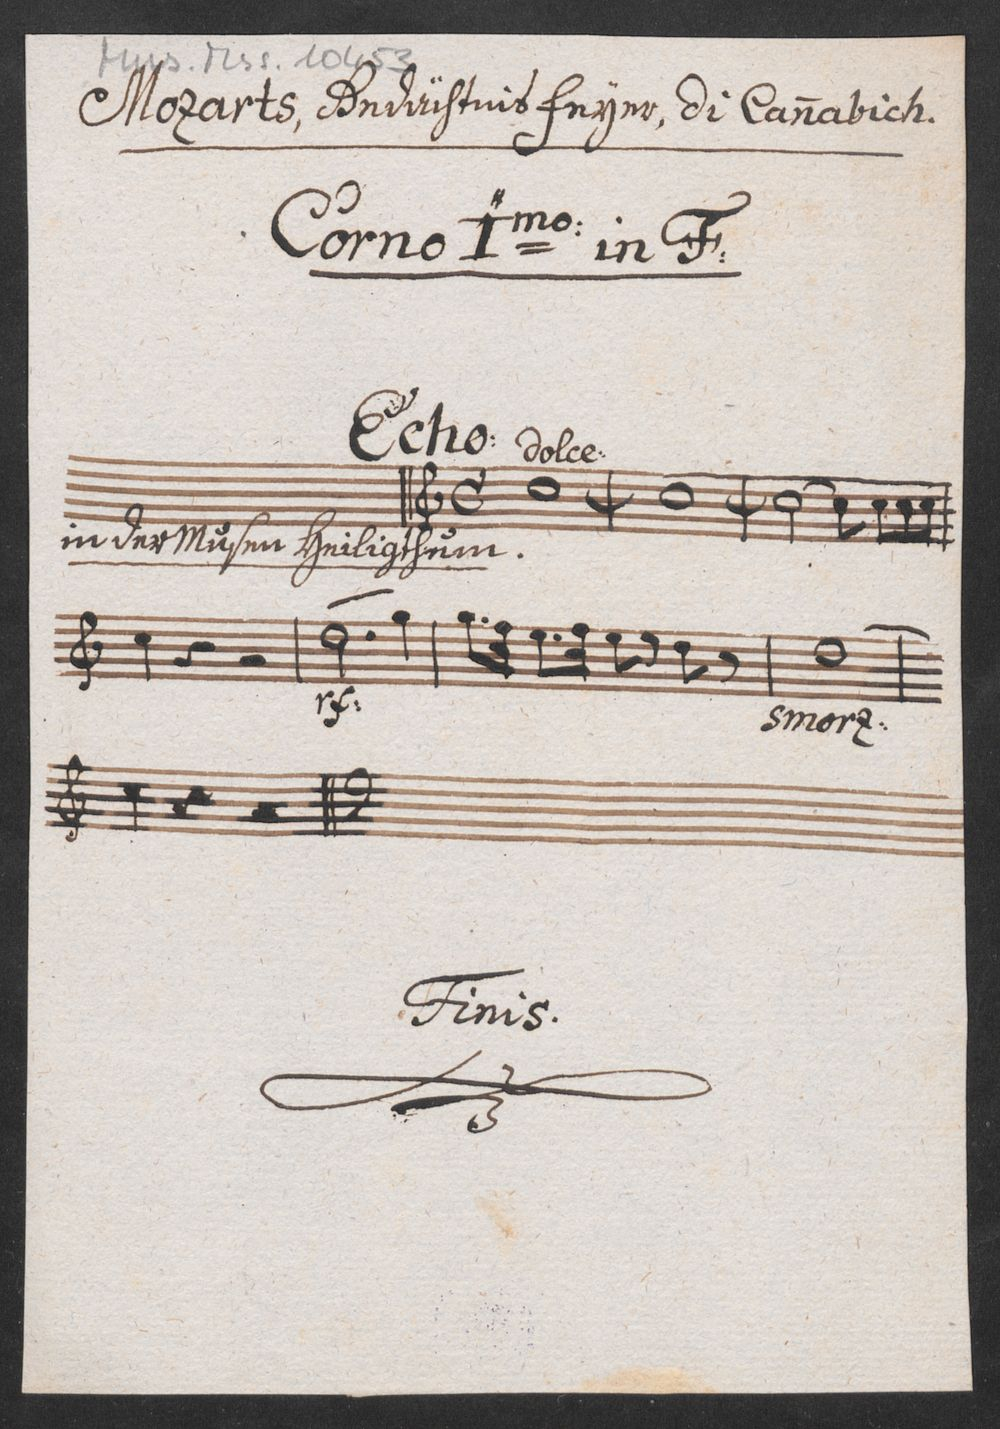 Mus. Mss. 10453
Mozarts, Gedächtnis feyer, di Can̄abich.
Corno Imo: in F:
Echo: dolce.
in der Musen Heiligthum.
rf:
smorz:
Finis.